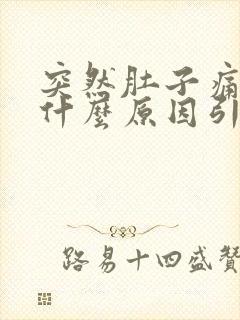 突然肚子痛
什麼原因引
路易十四盛贊